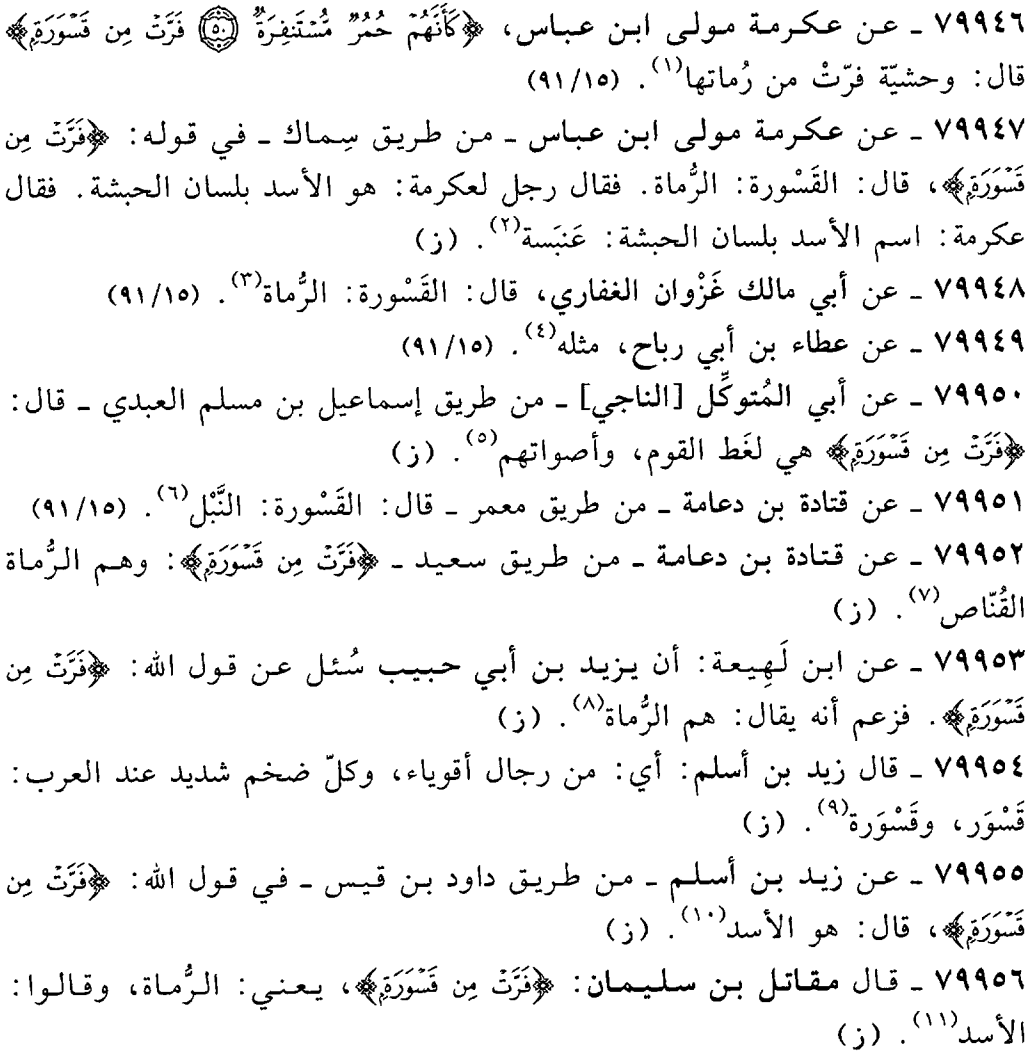 ٧٩٩٤٦ ـ عن عكرمة مولى ابن عباس، ﴿كَأَنَّهُمْ حُمُرٌ مُّسْتَنفِرَةٌ ۝٥٠ فَرَّتْ مِن قَسْوَرَةٍ﴾
قال: وحشيّة فرّتْ من رُماتها(١). (٩١/١٥)
٧٩٩٤٧ ـ عن عكرمة مولى ابن عباس ـ من طريق سِماك ـ في قوله: ﴿فَرَّتْ مِن
قَسْوَرَةٍ﴾، قال: القَسْورة: الرُّماة. فقال رجل لعكرمة: هو الأسد بلسان الحبشة. فقال
عكرمة: اسم الأسد بلسان الحبشة: عَنبَسة(٢). (ز)
٧٩٩٤٨ ـ عن أبي مالك غَزْوان الغفاري، قال: القَسْورة: الرُّماة(٣). (٩١/١٥)
٧٩٩٤٩ ـ عن عطاء بن أبي رباح، مثله(٤). (٩١/١٥)
٧٩٩٥٠ ـ عن أبي المُتوكِّل [الناجي] ـ من طريق إسماعيل بن مسلم العبدي ـ قال:
﴿فَرَّتْ مِن قَسْوَرَةٍ﴾ هي لغَط القوم، وأصواتهم(٥). (ز)
٧٩٩٥١ ـ عن قتادة بن دعامة ـ من طريق معمر ـ قال: القَسْورة: النَّبْل(٦). (٩١/١٥)
٧٩٩٥٢ ـ عن قتادة بن دعامة ـ من طريق سعيد ـ ﴿فَرَّتْ مِن قَسْوَرَةٍ﴾: وهم الرُّماة
القُنّاص(٧). (ز)
٧٩٩٥٣ ـ عن ابن لَهِيعة: أن يزيد بن أبي حبيب سُئل عن قول الله: ﴿فَرَّتْ مِن
قَسْوَرَةٍ﴾. فزعم أنه يقال: هم الرُّماة(٨). (ز)
٧٩٩٥٤ ـ قال زيد بن أسلم: أي: من رجال أقوياء، وكلّ ضخم شديد عند العرب:
قَسْوَر، وقَسْوَرة(٩). (ز)
٧٩٩٥٥ ـ عن زيد بن أسلم ـ من طريق داود بن قيس ـ في قول الله: ﴿فَرَّتْ مِن
قَسْوَرَةٍ﴾، قال: هو الأسد(١٠). (ز)
٧٩٩٥٦ ـ قال مقاتل بن سليمان: ﴿فَرَّتْ مِن قَسْوَرَةٍ﴾، يعني: الرُّماة، وقالوا:
الأسد(١١). (ز)